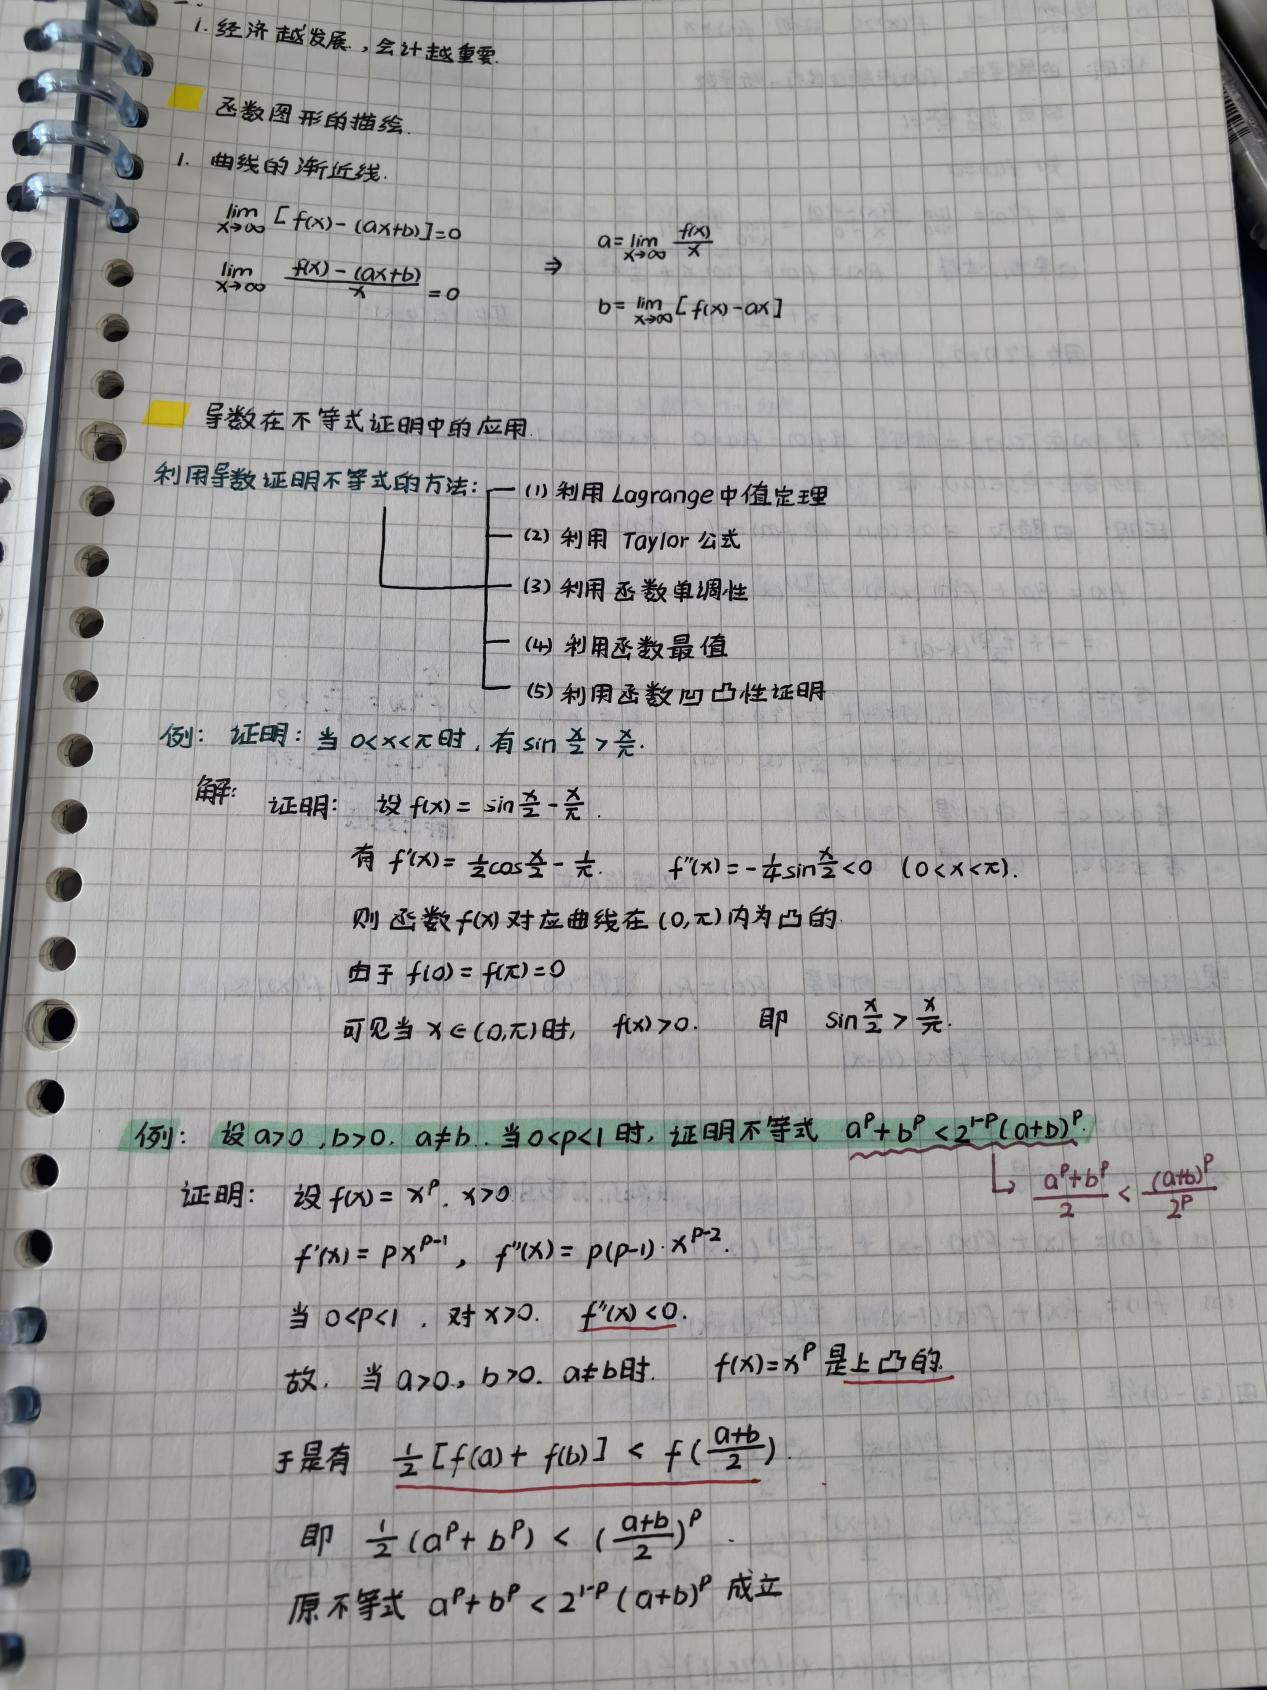 1. 经济越发展,会计越重要.
函数图形的描绘.
1. 曲线的渐近线.
lim x→∞ [f(x)-(ax+b)]=0
lim x→∞ (f(x)-(ax+b))/x =0
⇒
a=lim x→∞ f(x)/x
b=lim x→∞ [f(x)-ax]
导数在不等式证明中的应用.
利用导数证明不等式的方法:
(1) 利用 Lagrange 中值定理
(2) 利用 Taylor 公式
(3) 利用函数单调性
(4) 利用函数最值
(5) 利用函数凹凸性证明
例: 证明: 当 0<x<π时, 有 sin x/2 > x/π.
解: 证明: 设 f(x) = sin x/2 - x/π.
有 f'(x) = 1/2 cos x/2 - 1/π. f''(x) = -1/4 sin x/2 <0 (0<x<π).
则函数 f(x) 对应曲线在 (0,π) 内为凸的.
由于 f(0) = f(π) = 0
可见当 x∈(0,π)时, f(x)>0. 即 sin x/2 > x/π.
例: 设 a>0, b>0. a≠b. 当 0<p<1 时, 证明不等式 a^p+b^p<2^(1-p)(a+b)^p.
(a^p+b^p)/2 < (a+b)^p/2^p
证明: 设 f(x) = x^p. x>0
f'(x) = px^(p-1), f''(x) = p(p-1)·x^(p-2).
当 0<p<1, 对 x>0. f''(x)<0.
故. 当 a>0, b>0. a≠b时. f(x)=x^p 是上凸的.
于是有 1/2 [f(a)+f(b)] < f((a+b)/2).
即 1/2 (a^p+b^p) < ((a+b)/2)^p.
原不等式 a^p+b^p<2^(1-p)(a+b)^p 成立